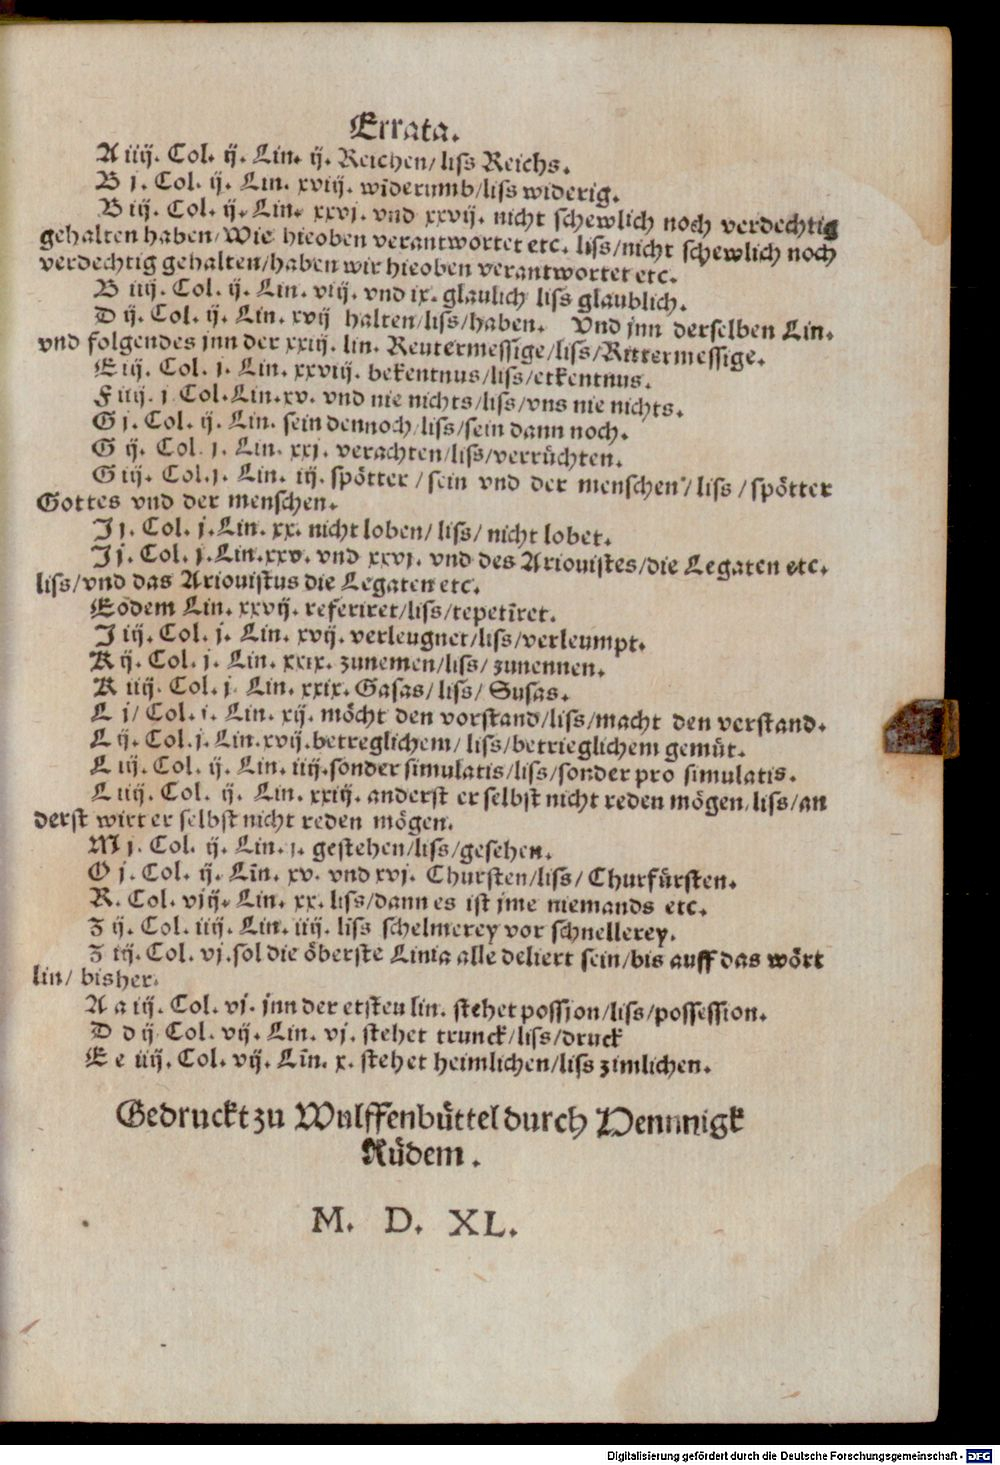 Errata.
A iiij. Col. ij. Lin. ij. Reichen/ liss Reichs.
B j. Col. ij. Lin. xviij. widerumb/liss widerig.
B iij. Col. ij. Lin. xxvj. vnd xxvij. nicht schewlich noch verdechtig
gehalten haben/Wie hieoben verantwortet etc. liss/nicht schewlich noch
verdechtig gehalten/haben wir hieoben verantwortet etc.
B iiij. Col. ij. Lin. viij. vnd ix. glaulich liss glaublich.
D ij. Col. ij. Lin. xvij halten/liss/haben. Vnd jnn derselben Lin.
vnd folgendes jnn der xxiij. lin. Reutermessige/liss/Rittermessige.
E iij. Col. j. Lin. xxviij. bekentnus/liss/etkentnus.
F iiij. j Col. Lin. xv. vnd nie nichts/liss/vns nie nichts.
G j. Col. ij. Lin. sein dennoch/liss/sein dann noch.
G ij. Col. j. Lin. xxj. verachten/liss/verrüchten.
G iij. Col. j. Lin. iij. spötter / sein vnd der menschen / liss / spötter
Gottes vnd der menschen.
J j. Col. j. Lin. xx. nicht loben/ liss/ nicht lobet.
J j. Col. j. Lin. xxv. vnd xxvj. vnd des Ariouistes/die Legaten etc.
liss/vnd das Ariouistus die Legaten etc.
Eodem Lin. xxvij. referiret/liss/tepetiret.
J iij. Col. j. Lin. xvij. verleugnet/liss/verleumpt.
K ij. Col. j. Lin. xxix. zunemen/liss/ zunennen.
K iiij. Col. j. Lin. xxix. Gasas/ liss/ Susas.
L j/ Col. i. Lin. xij. möcht den vorstand/liss/macht den verstand.
L ij. Col. j. Lin. xvij. betreglichem/ liss/betrieglichem gemüt.
L iij. Col. ij. Lin. iiij. sonder simulatis/liss/sonder pro simulatis.
L iiij. Col. ij. Lin. xxiij. anderst er selbst nicht reden mögen/liss/an
derst wirt er selbst nicht reden mögen.
M j. Col. ij. Lin. j. gestehen/liss/gesehen.
O j. Col. ij. Lin. xv. vnd xvj. Chursten/liss/ Churfürsten.
R. Col. vjij. Lin. xx. liss/dann es ist jme niemands etc.
Z ij. Col. iiij. Lin. iiij. liss schelmerey vor schnellerey.
Z iij. Col. vj. sol die öberste Linia alle deliert sein/bis auff das wört
lin/ bisher.
A a iij. Col. vj. jnn der etsten lin. stehet possion/liss/possession.
D d ij Col. vij. Lin. vj. stehet trunck/liss/druck
E e iiij. Col. vij. Lin. x. stehet heimlichen/liss zimlichen.
Gedruckt zu Wulffenbüttel durch Hennnigk
Rüdem.
M. D. XL.
Digitalisierung gefördert durch die Deutsche Forschungsgemeinschaft - DFG